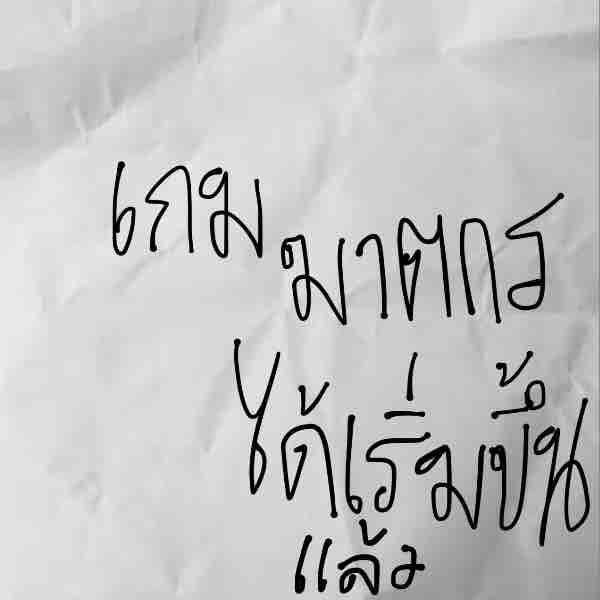 เกม
มาตกร
ได้เริ่มขึ้น
แล้ว